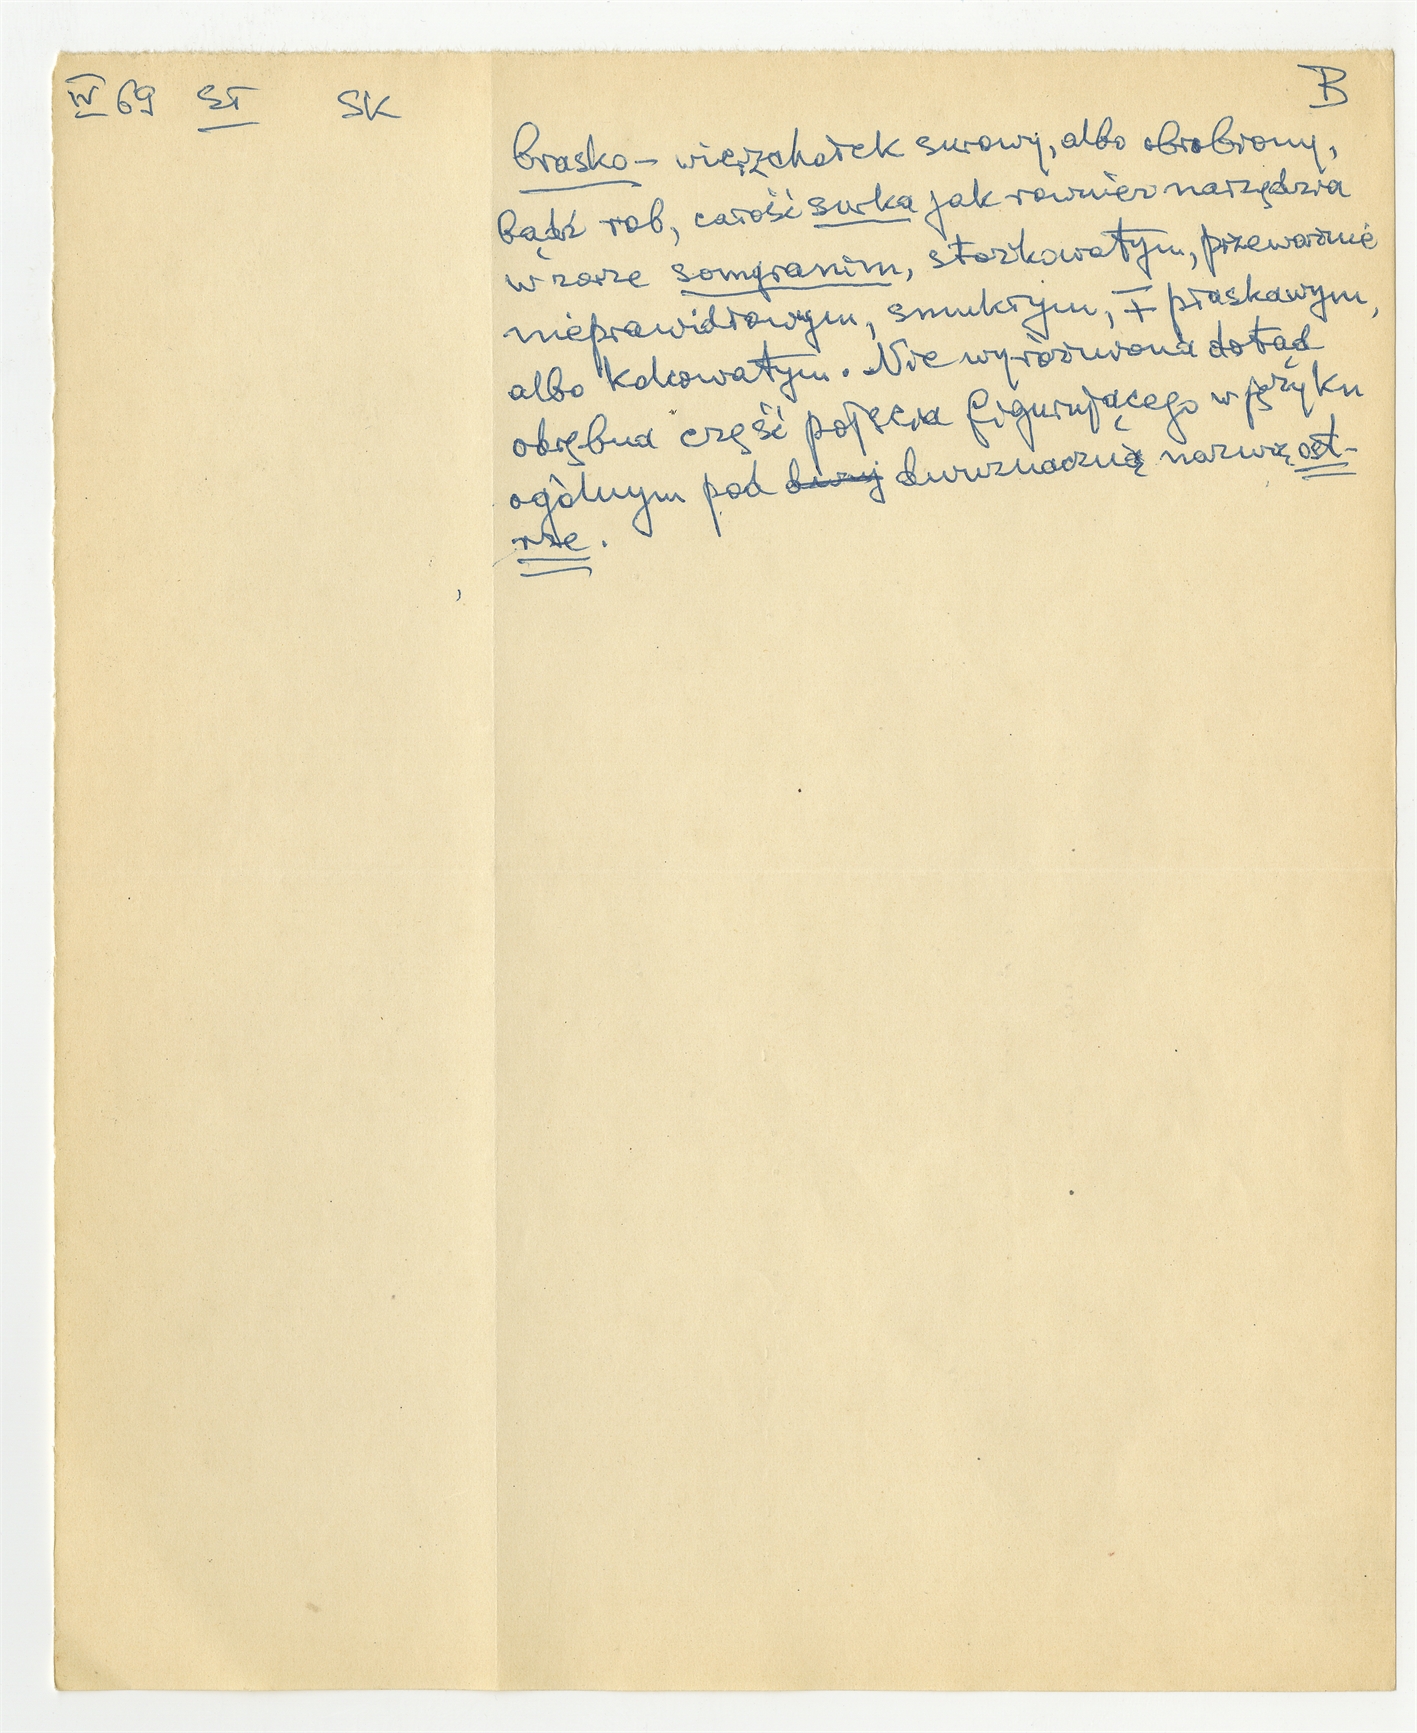 IV 69 SŁ SK
B
brasko – wierzchołek surowy, albo obrobiony,
bądź rob, całość surka jak również narzędzia
w zarze somgranim, stożkowatym, przeważnie
nieprawidłowym, smukłym, ∓ płaskawym,
albo kolcowatym. Nie wyróżniona dotąd
odrębna część pojęcia figurującego w języku
ogólnym pod dwuznaczną nazwą ost-
rze.